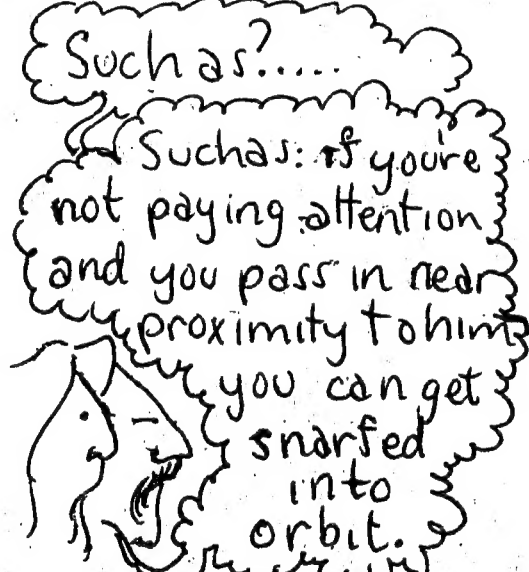 Such as?.....
Such as: if you're
not paying attention
and you pass in near
proximity to him
you can get
snarfed
into
orbit.